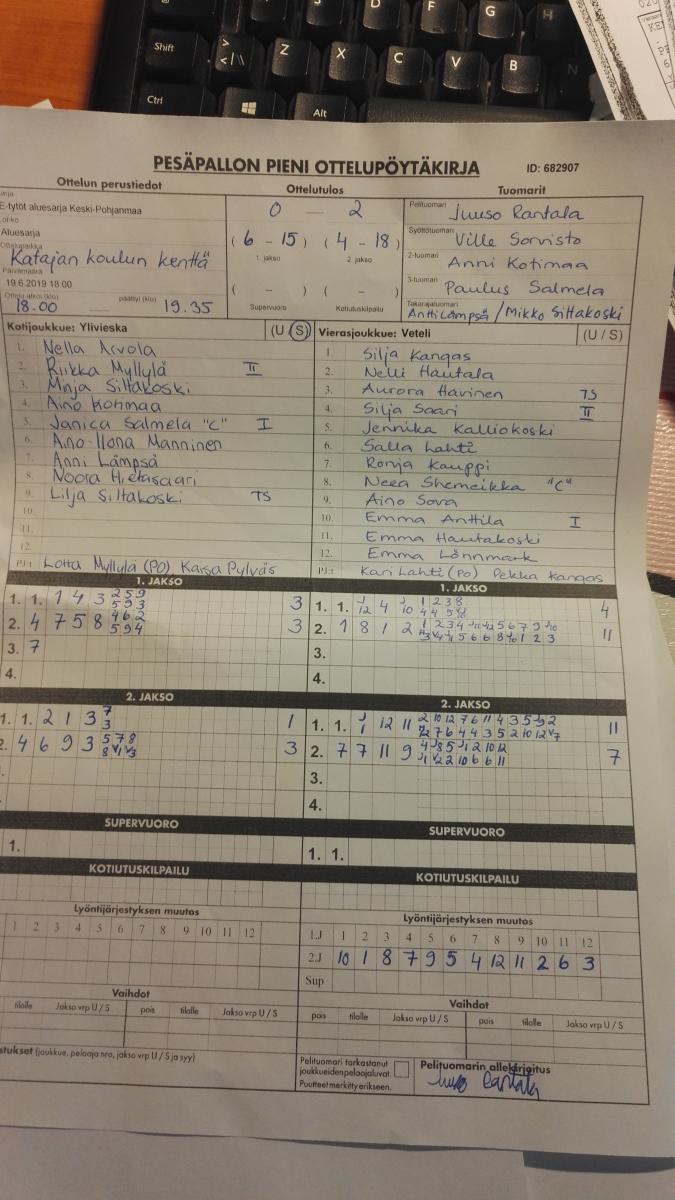 D F G H
Shift > < | \ Z X C V B N
Ctrl Alt
PESÄPALLON PIENI OTTELUPÖYTÄKIRJA ID: 682907
Ottelun perustiedot Ottelutulos Tuomarit
E-tytöt aluesarja Keski-Pohjanmaa
0 – 2
Pelituomari Juuso Rantala
Aluesarja
(6 – 15) (4 – 18)
1. jakso 2. jakso
Syöttötuomari Ville Sorvisto
Ottelupaikka
Katajan koulun kenttä
2-tuomari Anni Kotimaa
Päivämäärä
19.6.2019 18.00
( – ) ( – )
3-tuomari Paulus Salmela
Ottelu alkoi (klo) 18.00 päättyi (klo) 19.35
Supervuoro Kotiutuskilpailu
Takarajatuomari Antti Lämpsä / Mikko Siltakoski
Kotijoukkue: Ylivieska (U S)
1. Nella Arvola
2. Riikka Myllylä II
3. Minja Siltakoski
4. Aino Kohmaa
5. Janica Salmela "C" I
6. Aino-Ilona Manninen
7. Anni Lämpsä
8. Noora Hietasaari
9. Lilja Siltakoski TS
10.
11.
12.
PJ: Lotta Myllylä (PO) Kaisa Pylväs
Vierasjoukkue: Veteli (U / S)
1. Silja Kangas
2. Nelli Hautala
3. Aurora Havinen TS
4. Silja Saari II
5. Jennika Kalliokoski
6. Salla Lahti
7. Ronja Kauppi
8. Neea Shemeikka "C"
9. Aino Sova
10. Emma Anttila I
11. Emma Hautakoski
12. Emma Lönnmark
PJ: Kari Lahti (PO) Pekka Kangas
1. JAKSO
1. 1. 1 4 3 2 5 9 3
5 9 3
2. 4 7 5 8 4 6 2 3
5 9 4
3. 7
4.
1. JAKSO
1. 1. 4 1 2 3 8 4
2. 1 8 1 2 11
3.
4.
2. JAKSO
1. 1. 2 1 3 7 1
3
2. 4 6 9 3 5 7 8 3
2. JAKSO
1. 1. 12 11 2 10 12 7 6 11 4 3 5 11
7 6 4 4 3 5 2 10 12
2. 7 7 11 9 7
2 10 6 6 11
3.
4.
SUPERVUORO
1.
SUPERVUORO
1. 1.
KOTIUTUSKILPAILU
KOTIUTUSKILPAILU
Lyöntijärjestyksen muutos
1 2 3 4 5 6 7 8 9 10 11 12
Lyöntijärjestyksen muutos
1.J 1 2 3 4 5 6 7 8 9 10 11 12
2.J 10 1 8 7 9 5 4 12 11 2 6 3
Sup
Vaihdot
tilalle Jakso vrp U / S pois tilalle Jakso vrp U / S
Vaihdot
pois tilalle Jakso vrp U / S pois tilalle Jakso vrp U / S
(joukkue, pelaaja nro, jakso vrp U / S ja syy)
Pelituomari tarkastanut
joukkueiden pelaajaluvat.
Puutteet merkitty erikseen.
Pelituomarin allekirjoitus
Juuso Rantala